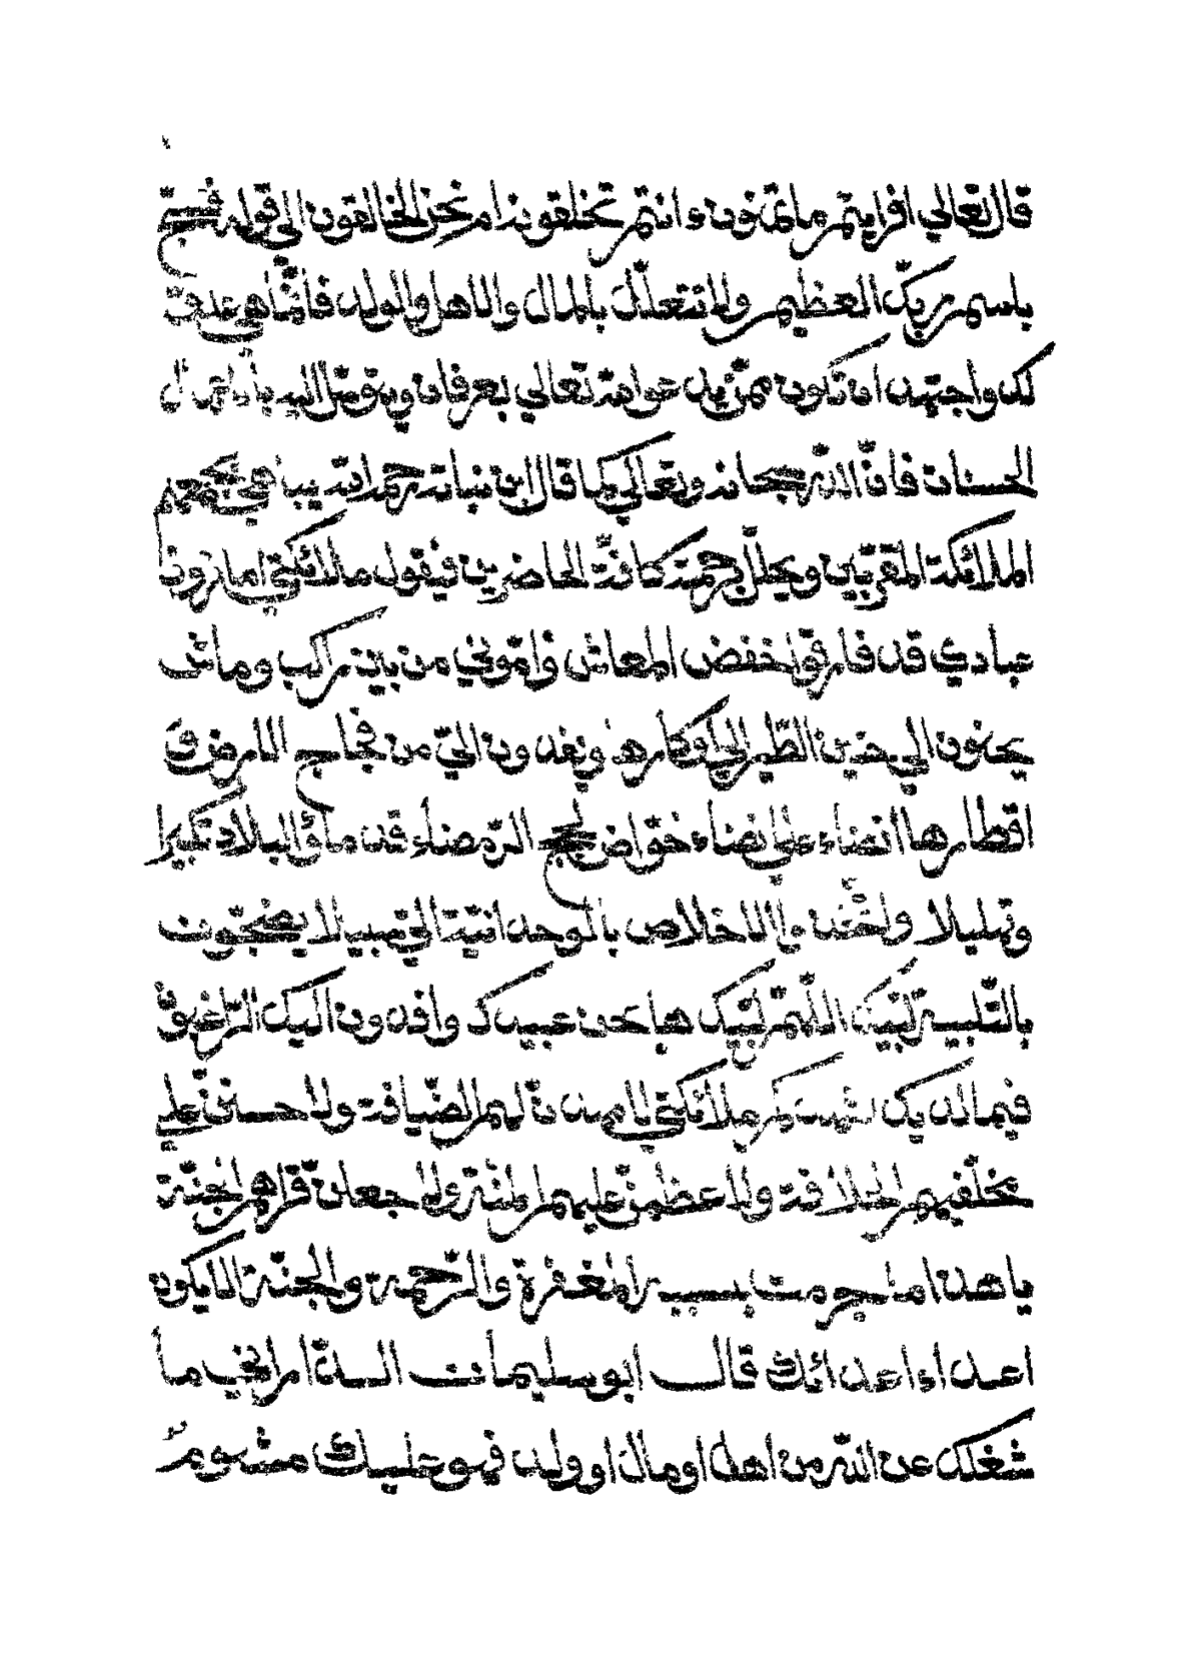 قال تعالي افرايتم ما تمنون ءانتم تخلقونه ام نحن الخالقون الي قوله فسبح
باسم ربك العظيم ولا تتعلل بالمال والاهل والولد فانما هي علقة
لك واجتهد ان تكون ممن يدعواه تعالي بعرفان ويتوسل اليه
الحسنات فان الله سبحانه وتعالي كما قال ابن نباته رحمه الله يباهي بجمعهم
الملائكة المقربين ويجلل برحمته كافة الحاضرين فيقول ملائكتي اما ترون
عبادي قد فارقوا خفض المعاش واتوني من بين راكب وماش
يحنون الي حنين الطير الي اوكارها ويفدون الي من فجاج الارض و
اقطارها انضاء علي انضاء خواض لجج الرمضاء قد ملؤ البلاد تكبيرا
وتهليلا والاخلاص بالوحدانية الي سبيلا يضجون
بالتلبية لبيك اللهم لبيك ها نحن عبيدك وافدون اليك الراغبون
فيما لديك اشهدكم ملائكتي لاحسنن لهم الضيافة ولاحسنن علي
مخلفيهم الخلافة ولاعظمن عليهم المنة ولاجعلن قراهم الجنة
يا هذا امثل حرمت بسببه المغفرة والرحمة والجنة الا يكون
اعدا اعدائك قال ابو سليمان الداراني ما
شغلك عن الله من اهل او مال او ولد فهو عليك مشوم